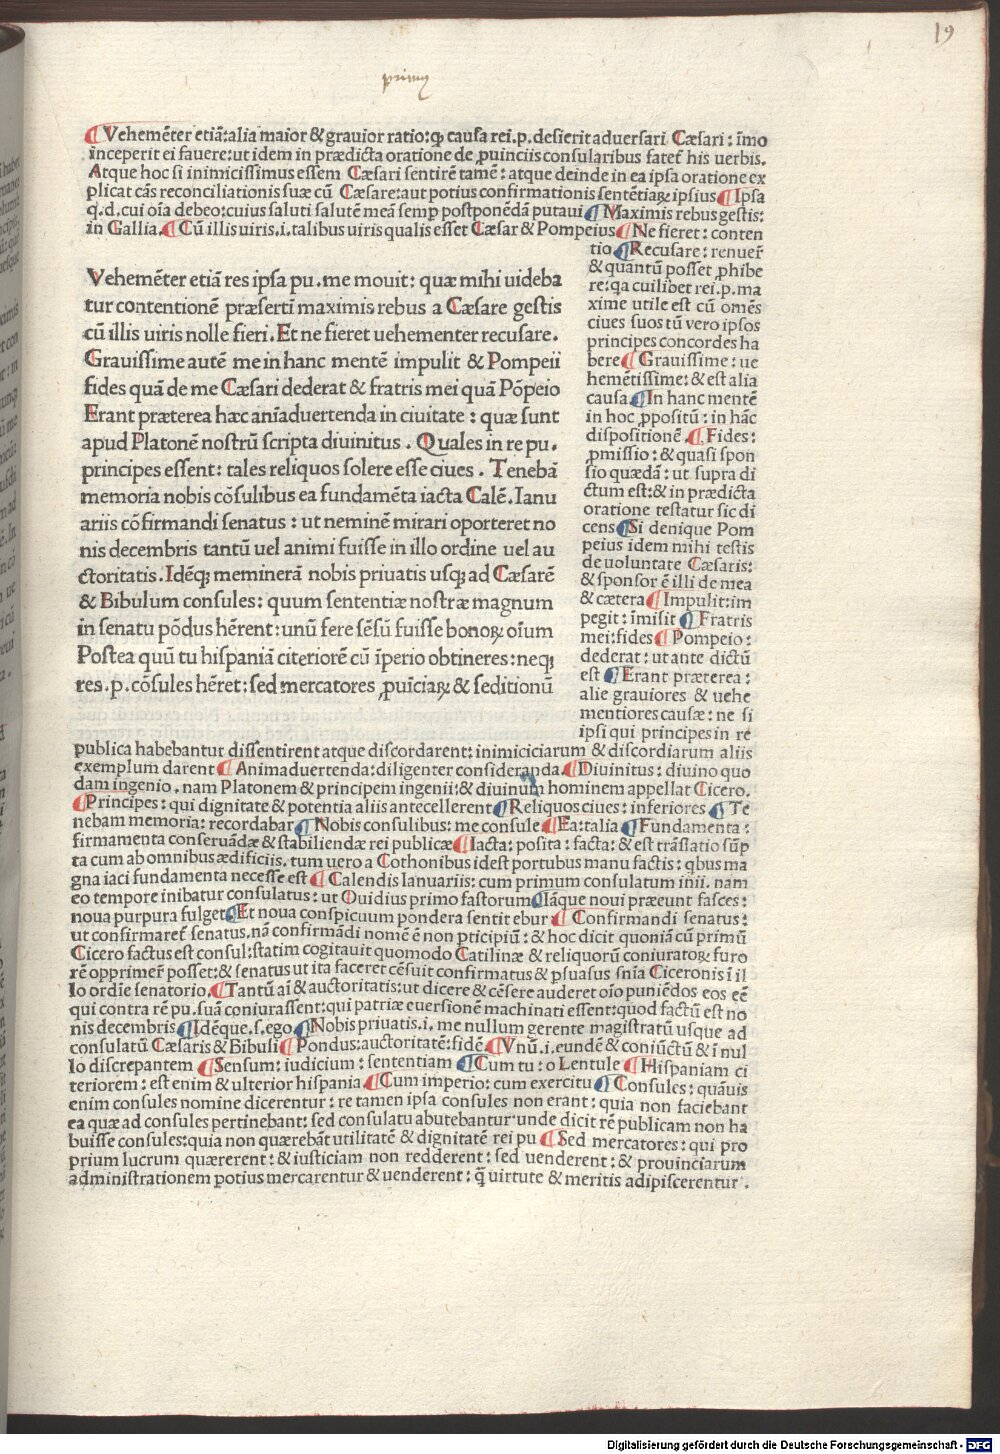 19
primus
¶ Vehemēter etiā: alia maior & grauior ratio: ꝙ causa rei.p. desierit aduersari Cæsari: īmo
inceperit ei fauere: ut idem in prædicta oratione de ꝓuinciis consularibus fatet᷑ his uerbis.
Atque hoc si inimicissimus essem Cæsari sentirē tamē: atque deinde in ea ipsa oratione ex
plicat cās reconciliationis suæ cū Cæsare: aut potius confirmationis sentētiaꝝ ipsius ¶ Ipsa
q.d. cui oīa debeo: cuius saluti salutē meā semp postponēdā putaui ¶ Maximis rebus gestis:
in Gallia. ¶ Cū illis uiris.i. talibus uiris qualis esset Cæsar & Pompeius ¶ Ne fieret: conten
tio ¶ Recusare: renuer᷑
& quantū posset ꝓhibe
re: qa cuilibet rei.p. ma
xime utile est cū omēs
ciues suos tū vero ipsos
principes concordes ha
bere ¶ Grauissime: ue
hemētissime: & est alia
causa. ¶ In hanc mentē
in hoc ꝓpositū: in hāc
dispositionē. ¶ Fides:
ꝓmissio: & quasi spon
sio quædā: ut supra di
ctum est: & in prædicta
oratione testatur sic di
cens ¶ Si denique Pom
peius idem mihi testis
de uoluntate Cæsaris:
& sponsor ē illi de mea
& cætera ¶ Impulit: im
pegit: īmisit ¶ Fratris
mei: fides ¶ Pompeio:
dederat: ut ante dictū
est ¶ Erant præterea:
alie grauiores & uehe
mentiores causæ: ne si
ipsi qui principes in re
Vehemēter etiā res ipsa pu. me mouit: quæ mihi uideba
tur contentionē præsertī maximis rebus a Cæsare gestis
cū illis uiris nolle fieri. Et ne fieret uehementer recusare.
Grauissime autē me in hanc mentē impulit & Pompeii
fides quā de me Cæsari dederat & fratris mei quā Pōpeio
Erant præterea hæc aniāduertenda in ciuitate: quæ sunt
apud Platonē nostrū scripta diuinitus. Quales in re pu.
principes essent: tales reliquos solere esse ciues. Tenebā
memoria nobis cōsulibus ea fundamēta iacta Calē. Ianu
ariis cōfirmandi senatus: ut neminē mirari oporteret no
nis decembris tantū uel animi fuisse in illo ordine uel au
ctoritatis. Idēqꝫ meminerā nobis priuatis usqꝫ ad Cæsarē
& Bibulum consules: quum sententiæ nostræ magnum
in senatu pōdus hērent: unū fere sēsū fuisse bonoꝝ oīum
Postea quū tu hispaniā citeriorē cū īperio obtineres: neqꝫ
res.p. cōsules hēret: sed mercatores ꝓuīciaꝝ & seditionū
publica habebantur dissentirent atque discordarent: inimiciciarum & discordiarum aliis
exemplum darent ¶ Animaduertenda: diligenter consideranda. ¶ Diuinitus: diuino quo
dam ingenio. nam Platonem & principem ingenii: & diuinum hominem appellat Cicero.
¶ Principes: qui dignitate & potentia aliis antecellerent ¶ Reliquos ciues: inferiores ¶ Te
nebam memoria: recordabar ¶ Nobis consulibus: me consule ¶ Ea: talia ¶ Fundamenta:
firmamenta conseruādæ & stabiliendæ rei publicæ ¶ Iacta: posita: facta: & est trāslatio sūp
ta cum ab omnibus ædificiis. tum uero a Cothonibus idest portubus manu factis: qbus ma
gna iaci fundamenta necesse est ¶ Calendis Ianuariis: cum primum consulatum inii. nam
eo tempore inibatur consulatus: ut Ouidius primo fastorum ¶ Iāque noui præeunt fasces:
noua purpura fulget ¶ Et noua conspicuum pondera sentit ebur ¶ Confirmandi senatus:
ut confirmaret᷑ senatus. nā confirmādi nomē ē non pticipiū: & hoc dicit quoniā cū primū
Cicero factus est consul: statim cogitauit quomodo Catilinæ & reliquorū coniuratoꝝ furo
rē opprimer᷑ posset: & senatus ut ita faceret cēsuit confirmatus & psuasus snīa Ciceronis ī il
lo ordīe senatorio. ¶ Tantū aī & auctoritatis: ut dicere & cēsere auderet oīo puniēdos eos eē
qui contra rē pu. suā coniurassent: qui patriæ euersionē machinati essent: quod factū est no
nis decembris ¶ Idēque.s. ego ¶ Nobis priuatis.i. me nullum gerente magistratū usque ad
consulatū Cæsaris & Bibuli ¶ Pondus: auctoritatē: fidē ¶ Vnū.i. eundē & coniūctū & ī nul
lo discrepantem ¶ Sensum: iudicium: sententiam ¶ Cum tu: o Lentule ¶ Hispaniam ci
teriorem: est enim & ulterior hispania ¶ Cum imperio: cum exercitu ¶ Consules: quāuis
enim consules nomine dicerentur: re tamen ipsa consules non erant: quia non faciebant
ea quæ ad consules pertinebant: sed consulatu abutebantur. unde dicit rē publicam non ha
buisse consules: quia non quærebāt utilitatē & dignitatē rei pu ¶ Sed mercatores: qui pro
prium lucrum quærerent: & iusticiam non redderent: sed uenderent: & prouinciarum
administrationem potius mercarentur & uenderent: q̄ uirtute & meritis adipiscerentur.
Digitalisierung gefördert durch die Deutsche Forschungsgemeinschaft - DFG